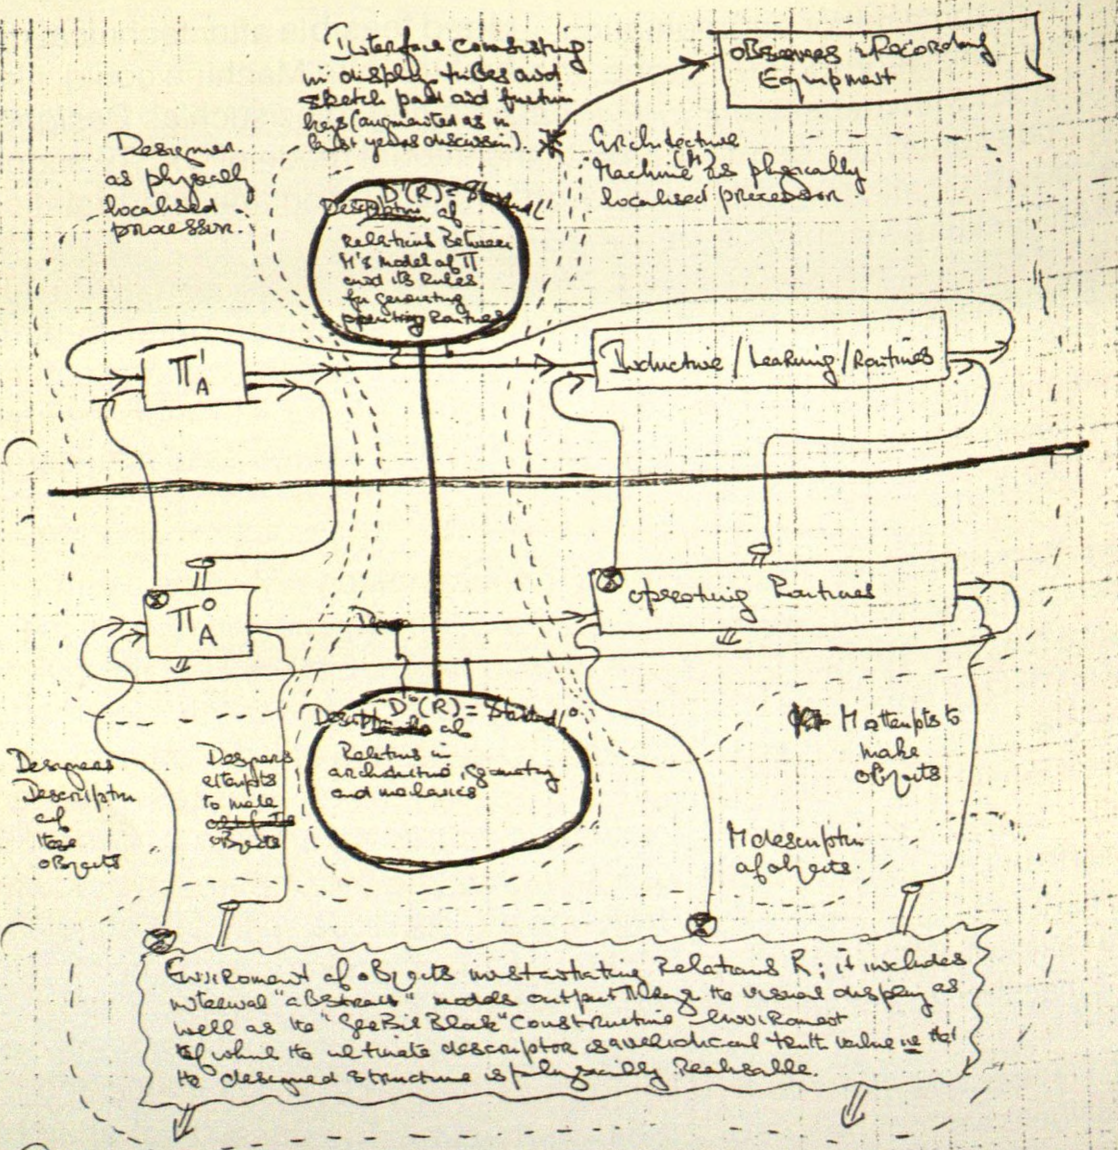 Interface consisting
in display tubes and
sketch pad and function
keys (augmented as in
last years discussion).
Observers Recording
Equipment
Designer
as physically
localised
processor.
Architecture
Machine (M) as physically
localised processor
D'(R) =
Description of
Relations Between
M's model of Π
and its Rules
for generating
operating Routines
Π¹A
Inductive / Learning / Routines
Π⁰A
operating Routines
D⁰(R) =
Description of
Relations in
architecture, geometry
and mechanics
Designers
Description
of
these
objects
Designers
attempts
to make
objects
M attempts to
make
objects
M description
of objects
Enviroment of objects instantiating Relations R; it includes
internal "abstract" models output through the visual display as
well as the "GeoBil Block" Constructive Enviroment
of which the ultimate descriptor is a veridical truth value ie that
the designed structure is physically Realisable.